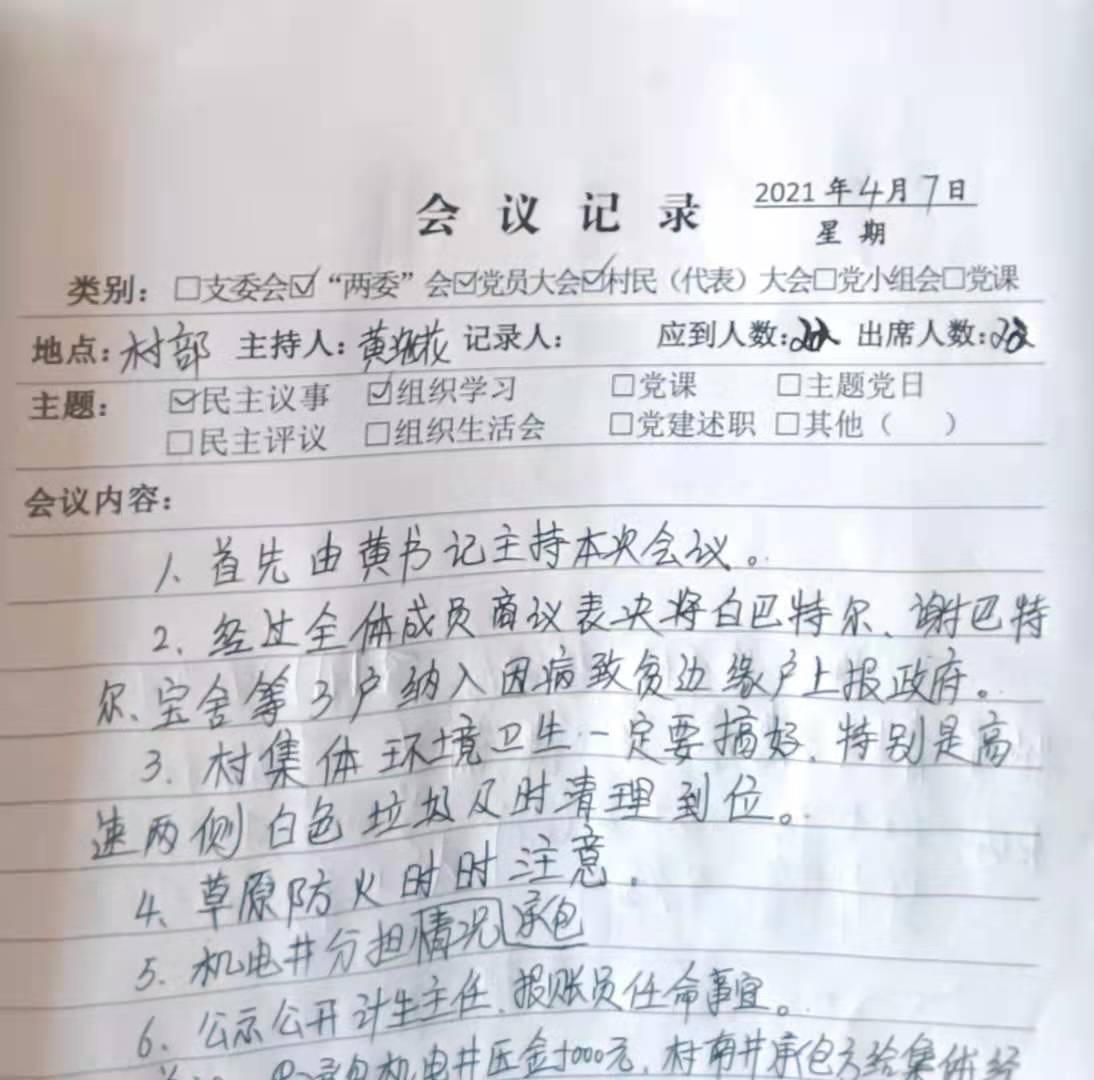 会议记录 2021年4月7日
星期
类别：□支委会☑“两委”会☑党员大会☑村民（代表）大会□党小组会□党课
地点：村部 主持人：黄 花 记录人： 应到人数： 出席人数：
主题： ☑民主议事 ☑组织学习 □党课 □主题党日
□民主评议 □组织生活会 □党建述职 □其他（ ）
会议内容：
1. 首先由黄书记主持本次会议。
2. 经过全体成员商议表决将白巴特尔、谢巴特
尔、宝舍等3户纳入因病致贫边缘户上报政府。
3. 村集体环境卫生一定要搞好，特别是高
速两侧白色垃圾及时清理到位。
4、草原防火时时注意。
5. 机电井分担情况承包
6. 公示公开计生主任、报账员任命事宜。
承包机电井压金1000元，村南井承包方给集体经